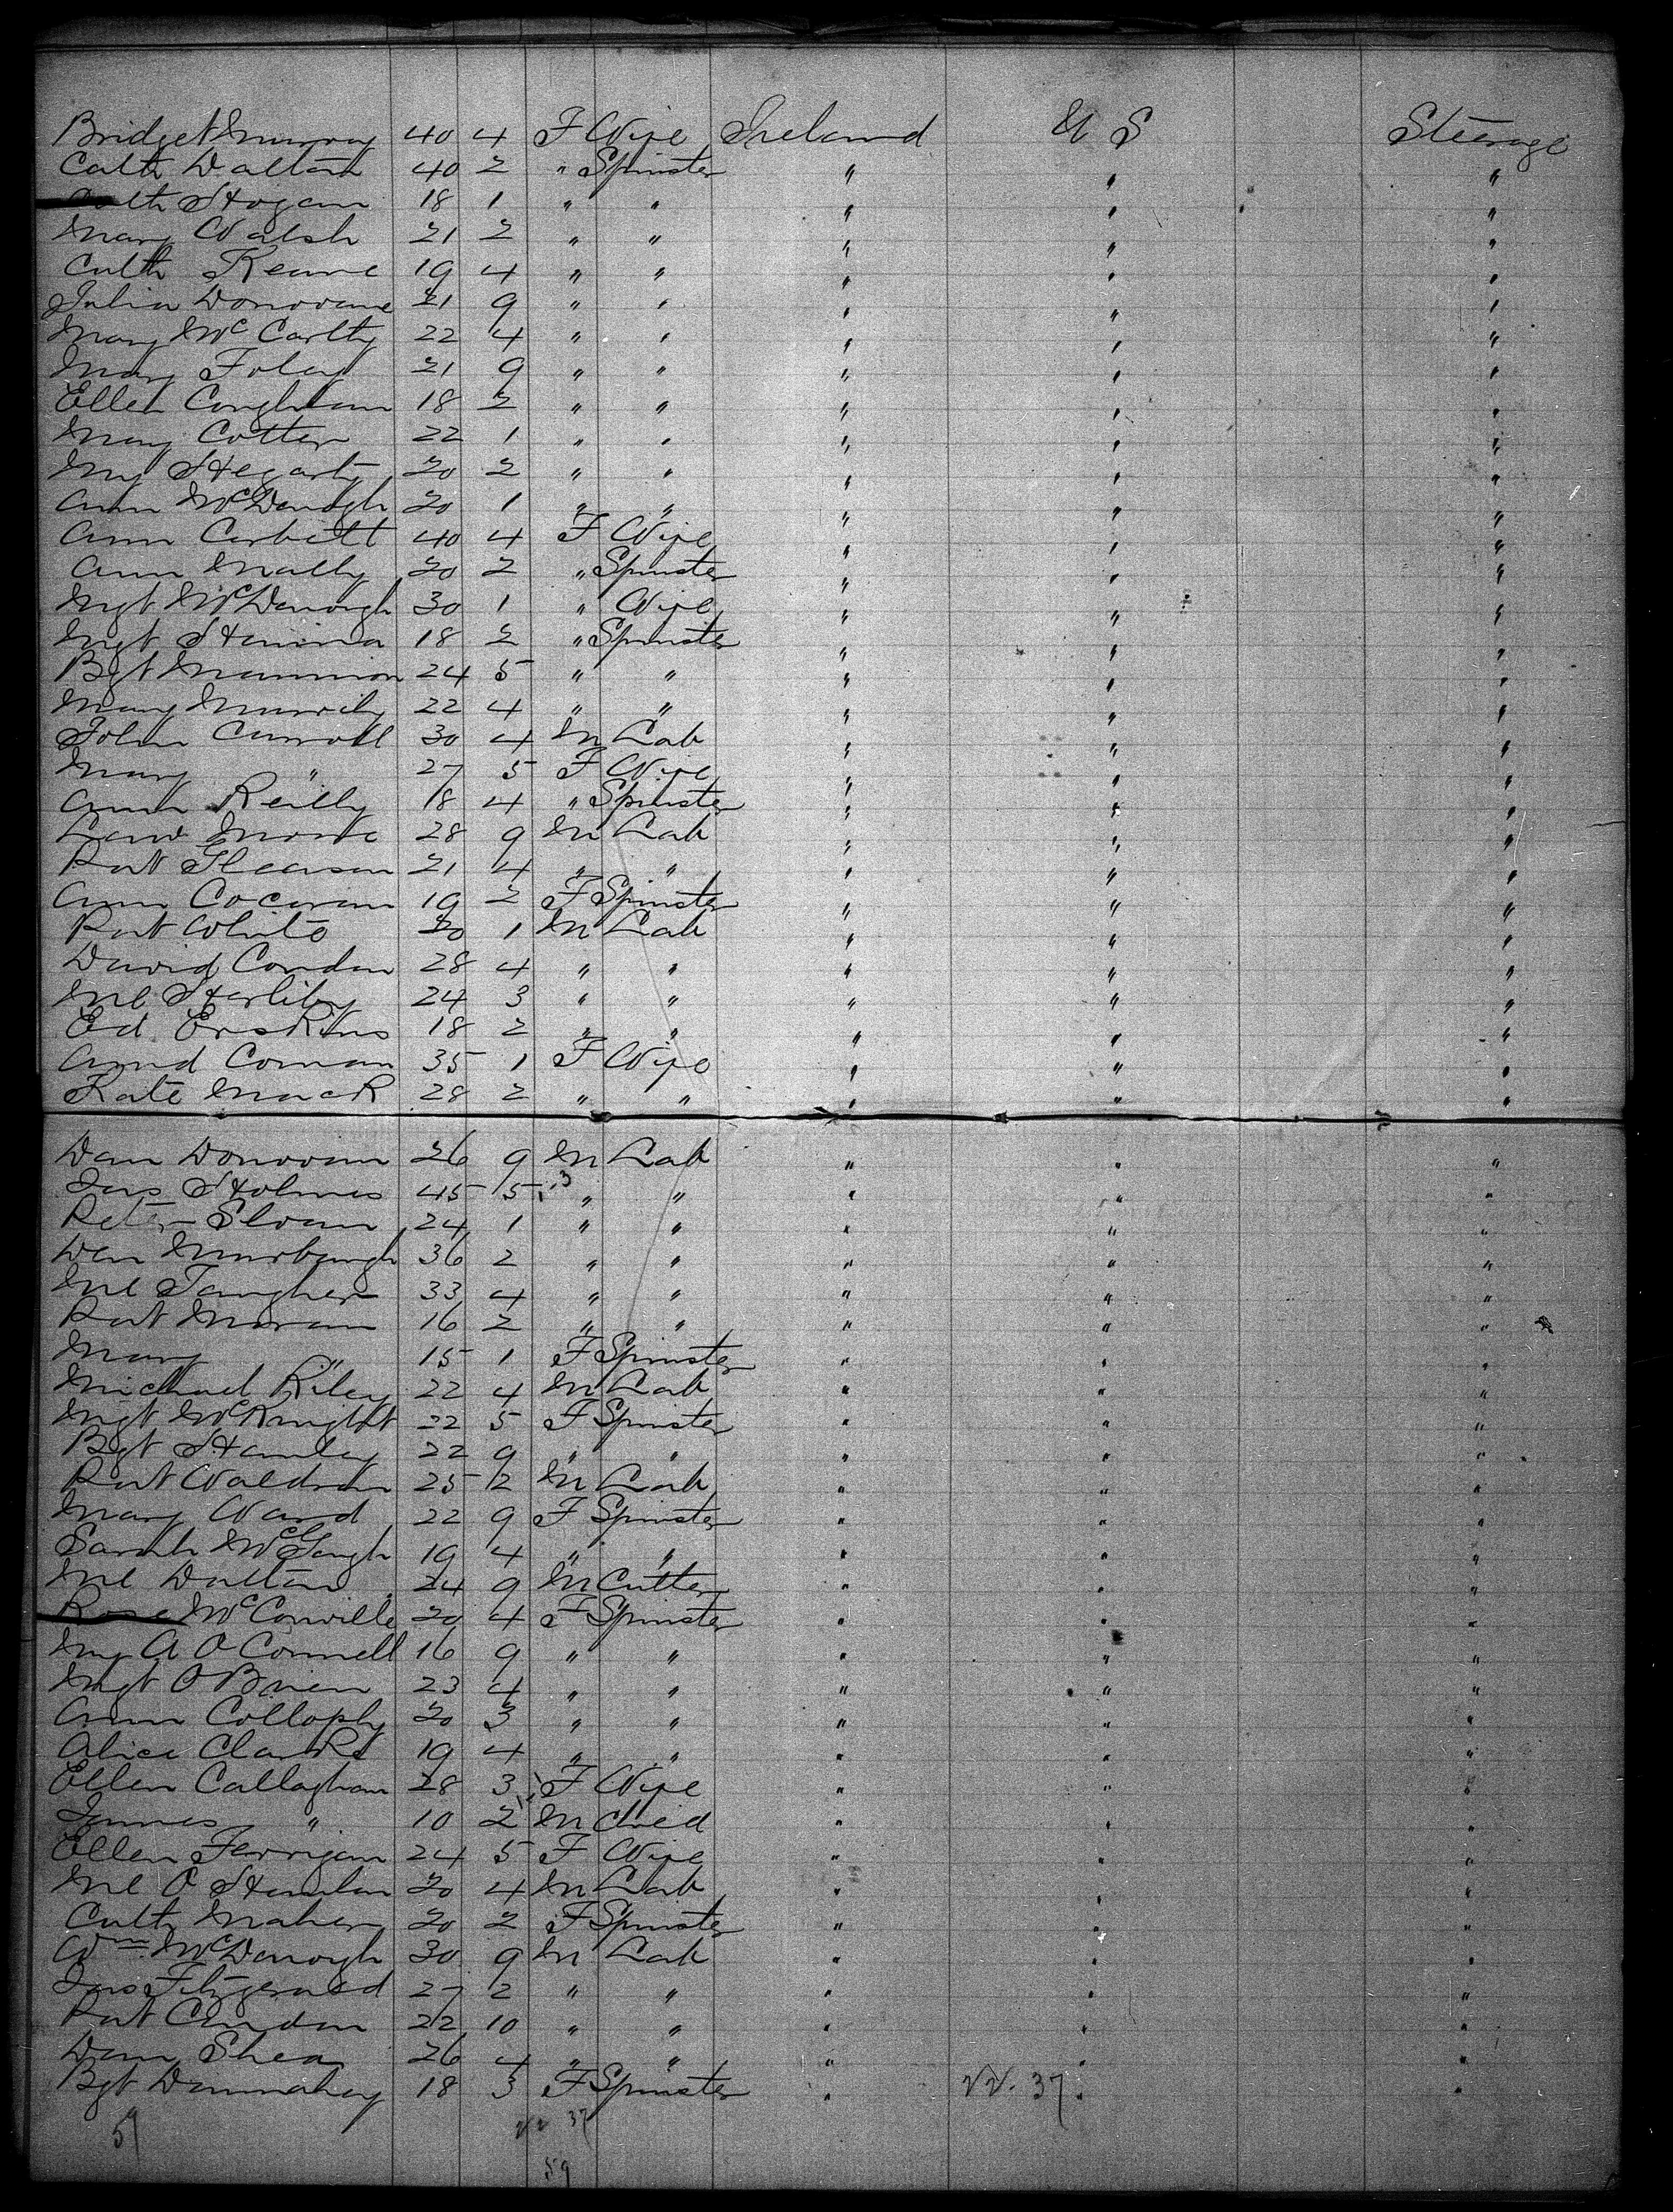 Bridget Murray 40 4 F Wife Ireland U S Steerage
Cath Dalton 40 2 " Spinster " " "
Cath Hogan 18 1 " " " " "
Mary Walsh 21 2 " " " " "
Cath Keane 19 4 " " " " "
Julia Donovan 21 9 " " " " "
Mary McCarthy 22 4 " " " " "
Mary Foley 21 9 " " " " "
Ellen Coughlan 18 2 " " " " "
Mary Cotter 22 1 " " " " "
My Hegarty 20 2 " " " " "
Ann McDonogh 20 1 " " " " "
Ann Corbett 40 4 F Wife " " "
Ann Mally 20 2 " Spinster " " "
Mgt McDonough 30 1 " Wife " " "
Mgt 18 2 " Spinster " " "
Bgt Mannion 24 5 " " " " "
Mary 22 4 " " " " "
John Carroll 30 4 M Lab " " "
Mary " 27 5 F Wife " " "
Ann Reilly 18 4 " Spinster " " "
Law 28 9 M Lab " " "
Pat Gleason 21 4 " " " " "
Ann Cocoran 19 2 F Spinster " " "
Pat White 20 1 M Lab " " "
David Condon 28 4 " " " " "
Ml Herlihy 24 3 " " " " "
Ed Erskins 18 2 " " " " "
Coman 35 1 F Wife " " "
Kate Mack 28 2 " " " " "
Dan Donovan 26 9 M Lab " " "
Jas Holmes 45 5 " " " " "
Peter Sloan 24 1 " " " " "
Den 36 2 " " " " "
Ml Taugher 33 4 " " " " "
Pat Moran 16 2 " " " " "
Mary " 15 1 F Spinster " " "
Michael Riley 22 4 M Lab " " "
Mgt McKnight 22 5 F Spinster " " "
Bgt Hanley 22 9 " " " " "
Pat Waldron 25 2 M Lab " " "
Mary Ward 22 9 F Spinster " " "
Sarah McGough 19 4 " " " " "
Ml Dalton 24 9 M Cutter " " "
Rose McConville 20 4 F Spinster " " "
My A O Connell 16 9 " " " " "
Mgt O Brien 23 4 " " " " "
Ann Collophy 20 3 " " " " "
Alice Clarke 19 4 " " " " "
Ellen Callaghan 28 3 F Wife " " "
James " 10 2 M Child " " "
Ellen Ferrigan 24 5 F Wife " " "
Ml O Hanlon 20 4 M Lab " " "
Cath Maher 20 2 F Spinster " " "
Wm McDonough 30 9 M Lab " " "
Jas Fitzgerald 27 2 " " " " "
Pat Condon 22 10 " " " " "
Dan Shea 26 4 " " " " "
Bgt Dannahey 18 3 F Spinster " " "
37
59
37
59